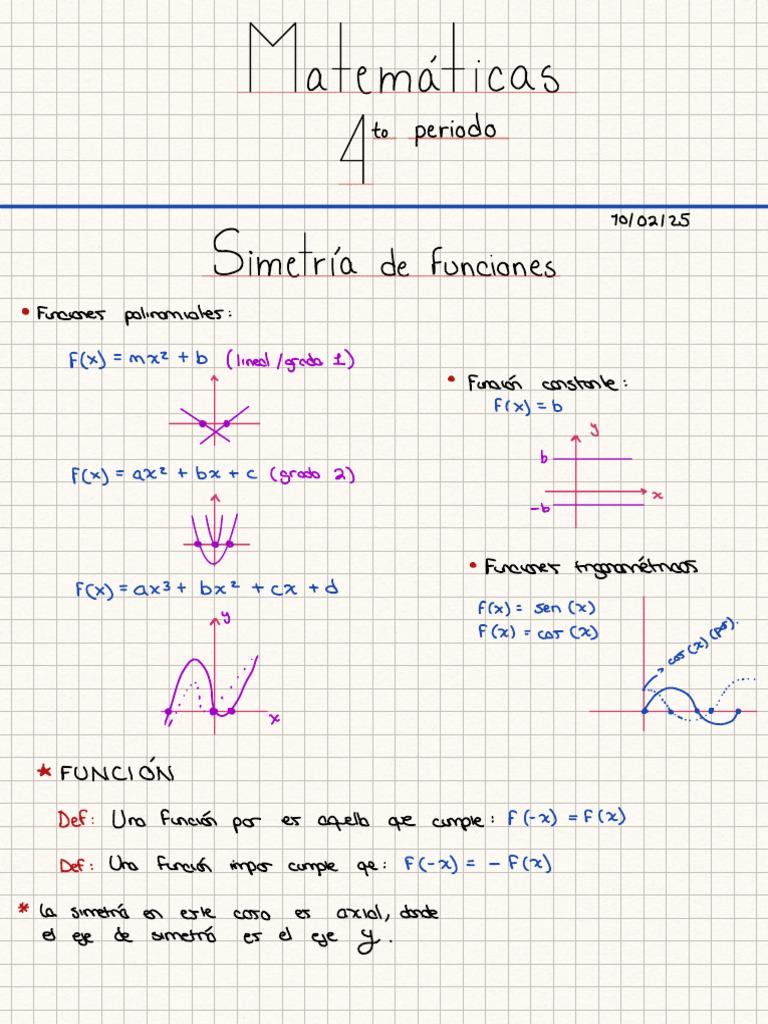 Matemáticas
4to periodo
10/02/25
Simetría de funciones
• Funciones polinomiales:
F(x) = mx² + b (lineal/grado 1)
F(x) = ax² + bx + c (grado 2)
F(x) = ax³ + bx² + cx + d
y
x
• Función constante:
F(x) = b
y
b
x
-b
• Funciones trigonométricas
F(x) = sen (x)
F(x) = cos (x)
cos (x) (par).
* FUNCIÓN
Def: Una función par es aquella que cumple: F(-x) = F(x)
Def: Una función impar cumple qe: F(-x) = - F(x)
* La simetría en este caso es axial, donde
el eje de simetría es el eje y.